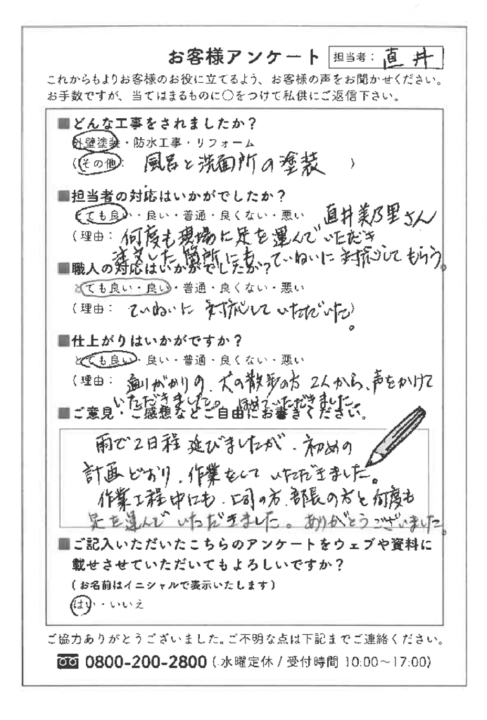 お客様アンケート 担当者: 直井
これからもよりお客様のお役に立てるよう、お客様の声をお聞かせください。
お手数ですが、当てはまるものに○をつけて私供にご返信下さい。
■どんな工事をされましたか?
外壁塗装・防水工事・リフォーム
(その他: 風呂と洗面所の塗装 )
■担当者の対応はいかがでしたか?
とても良い・良い・普通・良くない・悪い 直井美乃里さん
(理由: 何度も現場に足を運んでいただき
注文した箇所にも、ていねいに対応してもらう。
■職人の対応はいかがでしたか?
とても良い・良い・普通・良くない・悪い
(理由: ていねいに対応していただいた)
■仕上がりはいかがですか?
とても良い・良い・普通・良くない・悪い
(理由: 通りがかりの、犬の散歩の方2人から、声をかけて
いただきました。ほめていただきました
■ご意見・ご感想などご自由にお書きください。
雨で2日程延びましたが、初めの
計画どおり、作業をしていただきました。
作業工程中にも、上司の方、部長の方と何度も
足を運んでいただきました。ありがとうございました。
■ご記入いただいたこちらのアンケートをウェブや資料に
載せさせていただいてもよろしいですか?
(お名前はイニシャルで表示いたします)
はい・いいえ
ご協力ありがとうございました。ご不明な点は下記までご連絡ください。
0800-200-2800 (水曜定休/受付時間 10:00~17:00)